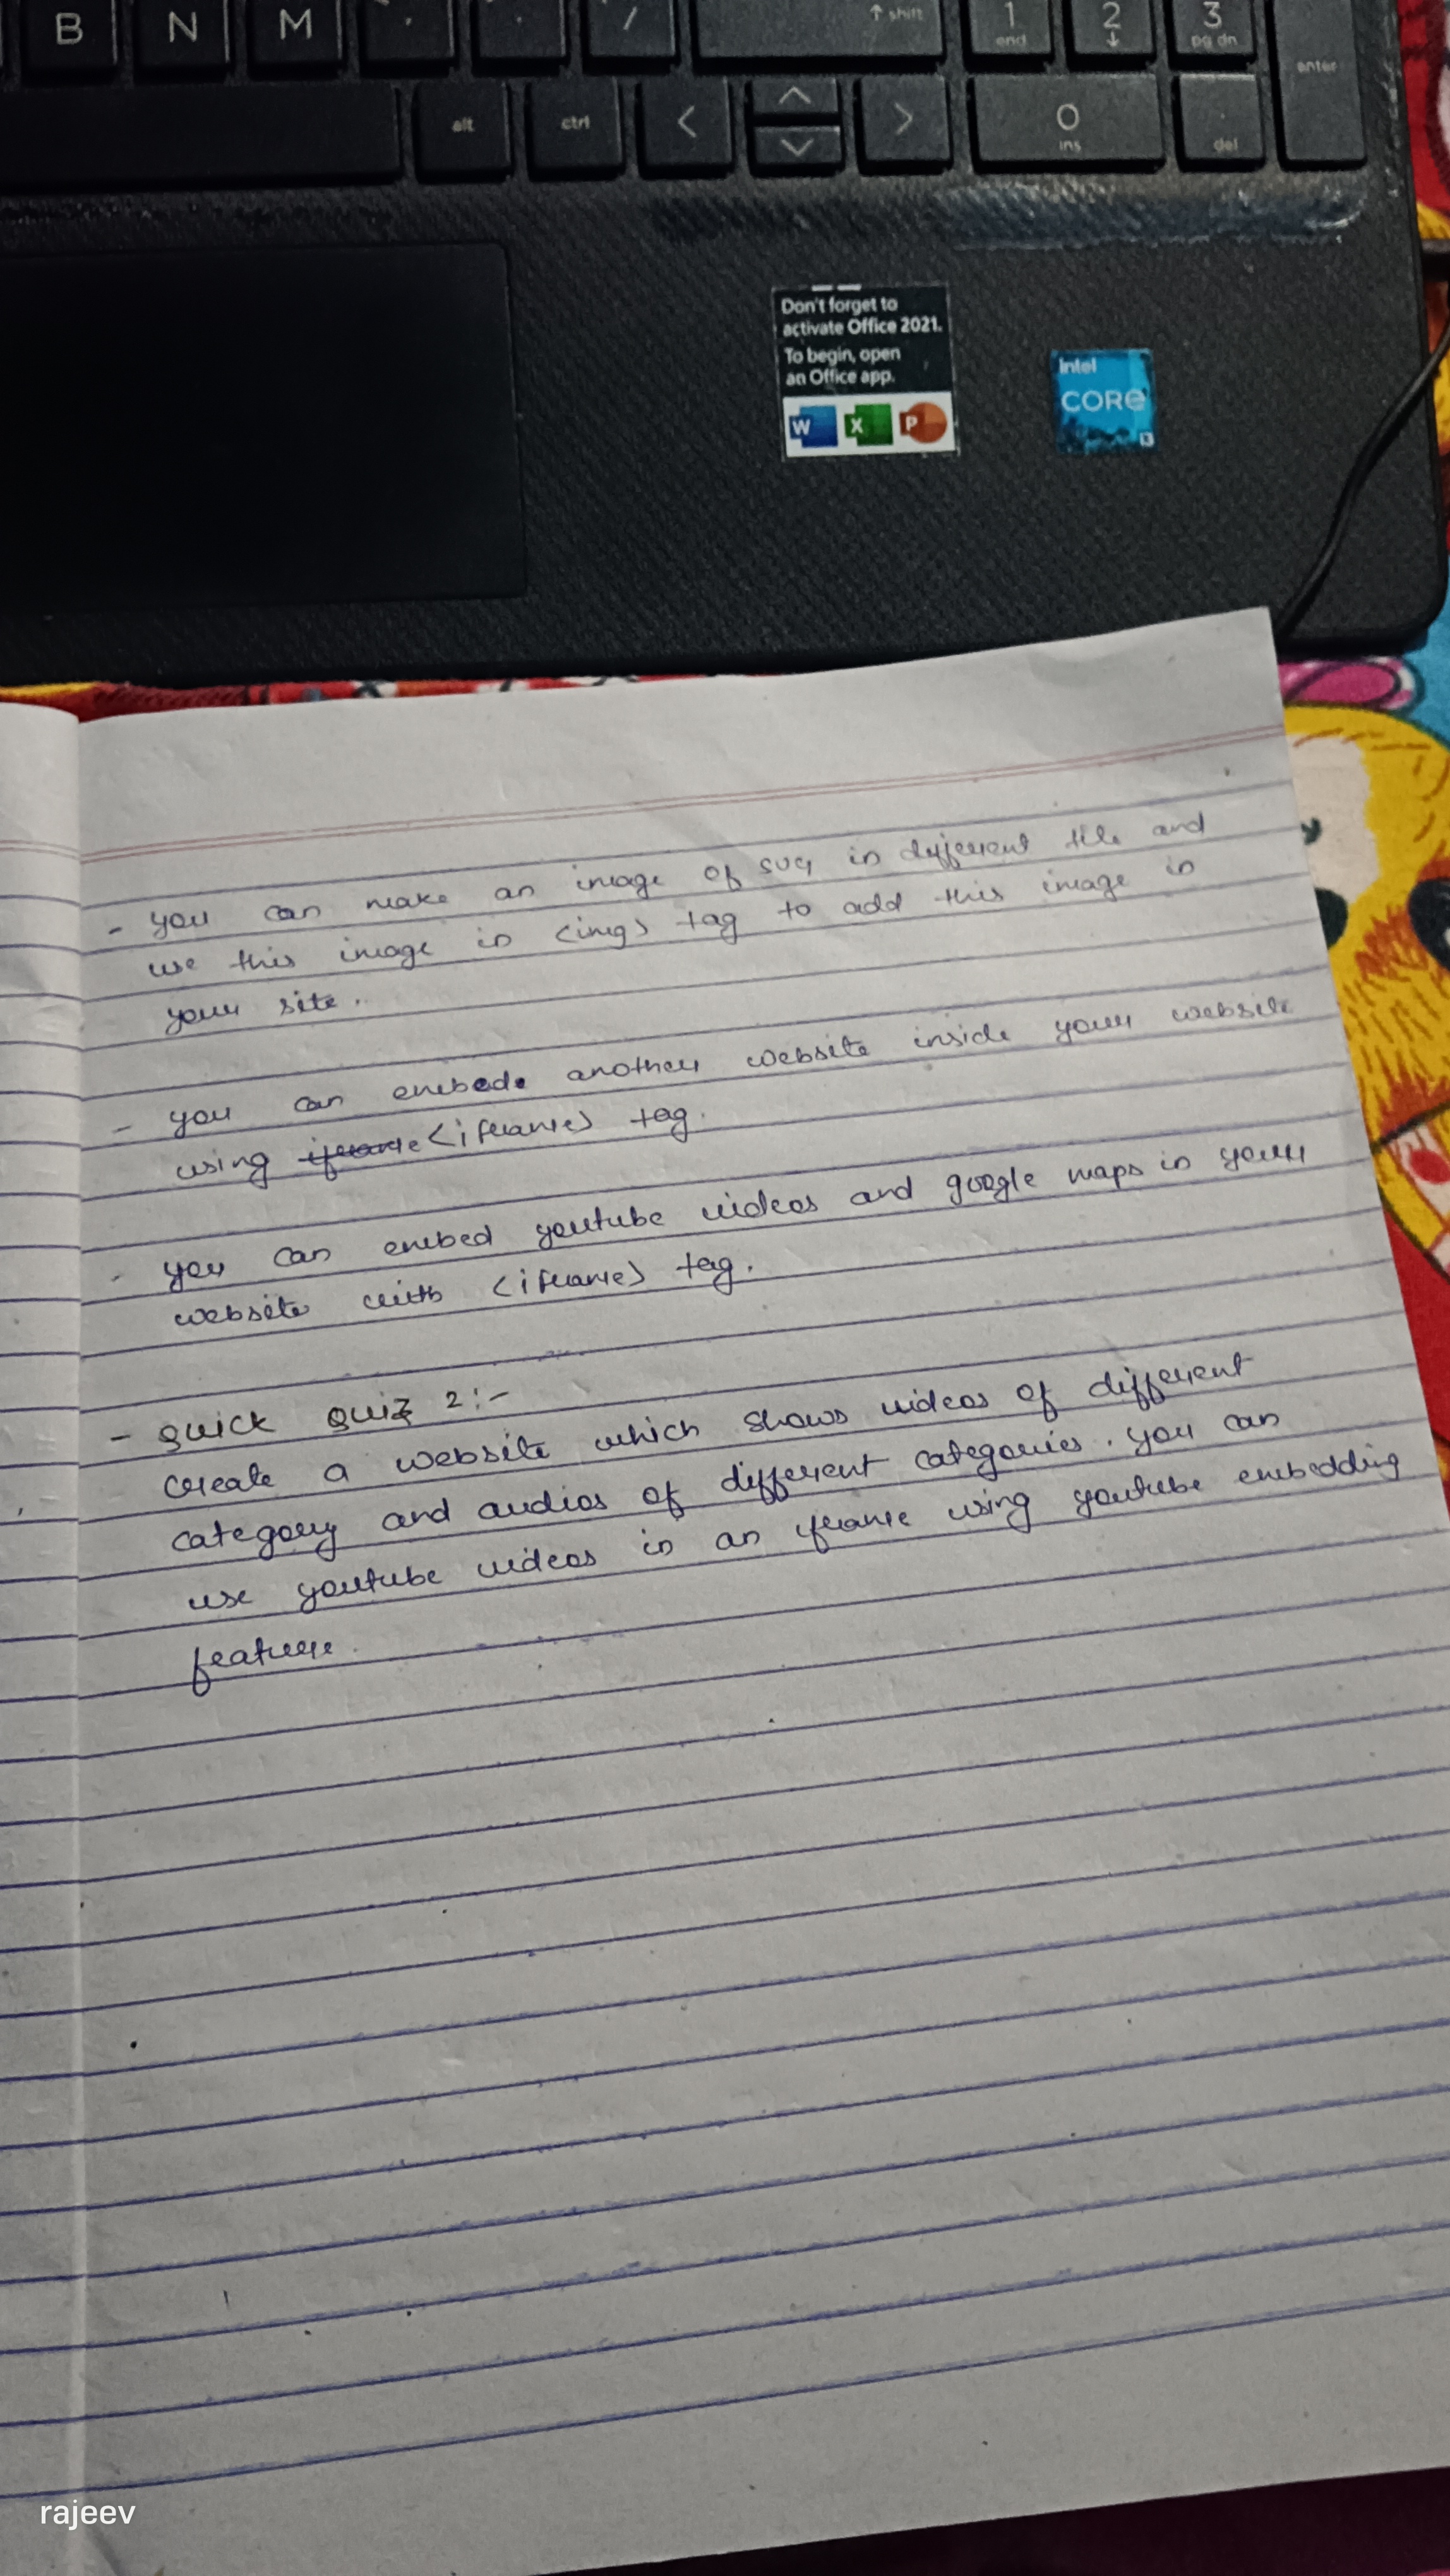 B N M , . / ↑ shift 1 end 2 ↓ 3 pg dn enter
alt ctrl < ^ v > 0 ins . del
Don't forget to
activate Office 2021.
To begin, open
an Office app.
W X P
intel
CORE
i3
- you can make an image of SVG in different file and
use this image in <img> tag to add this image in
your site.
- you can embed another website inside your website
using iframe <iframe> tag.
- you can embed youtube videos and google maps in your
website with <iframe> tag.
- QUICK QUIZ 2:-
create a website which shows videos of different
category and audios of different categories. you can
use youtube videos in an iframe using youtube embedding
feature.
rajeev